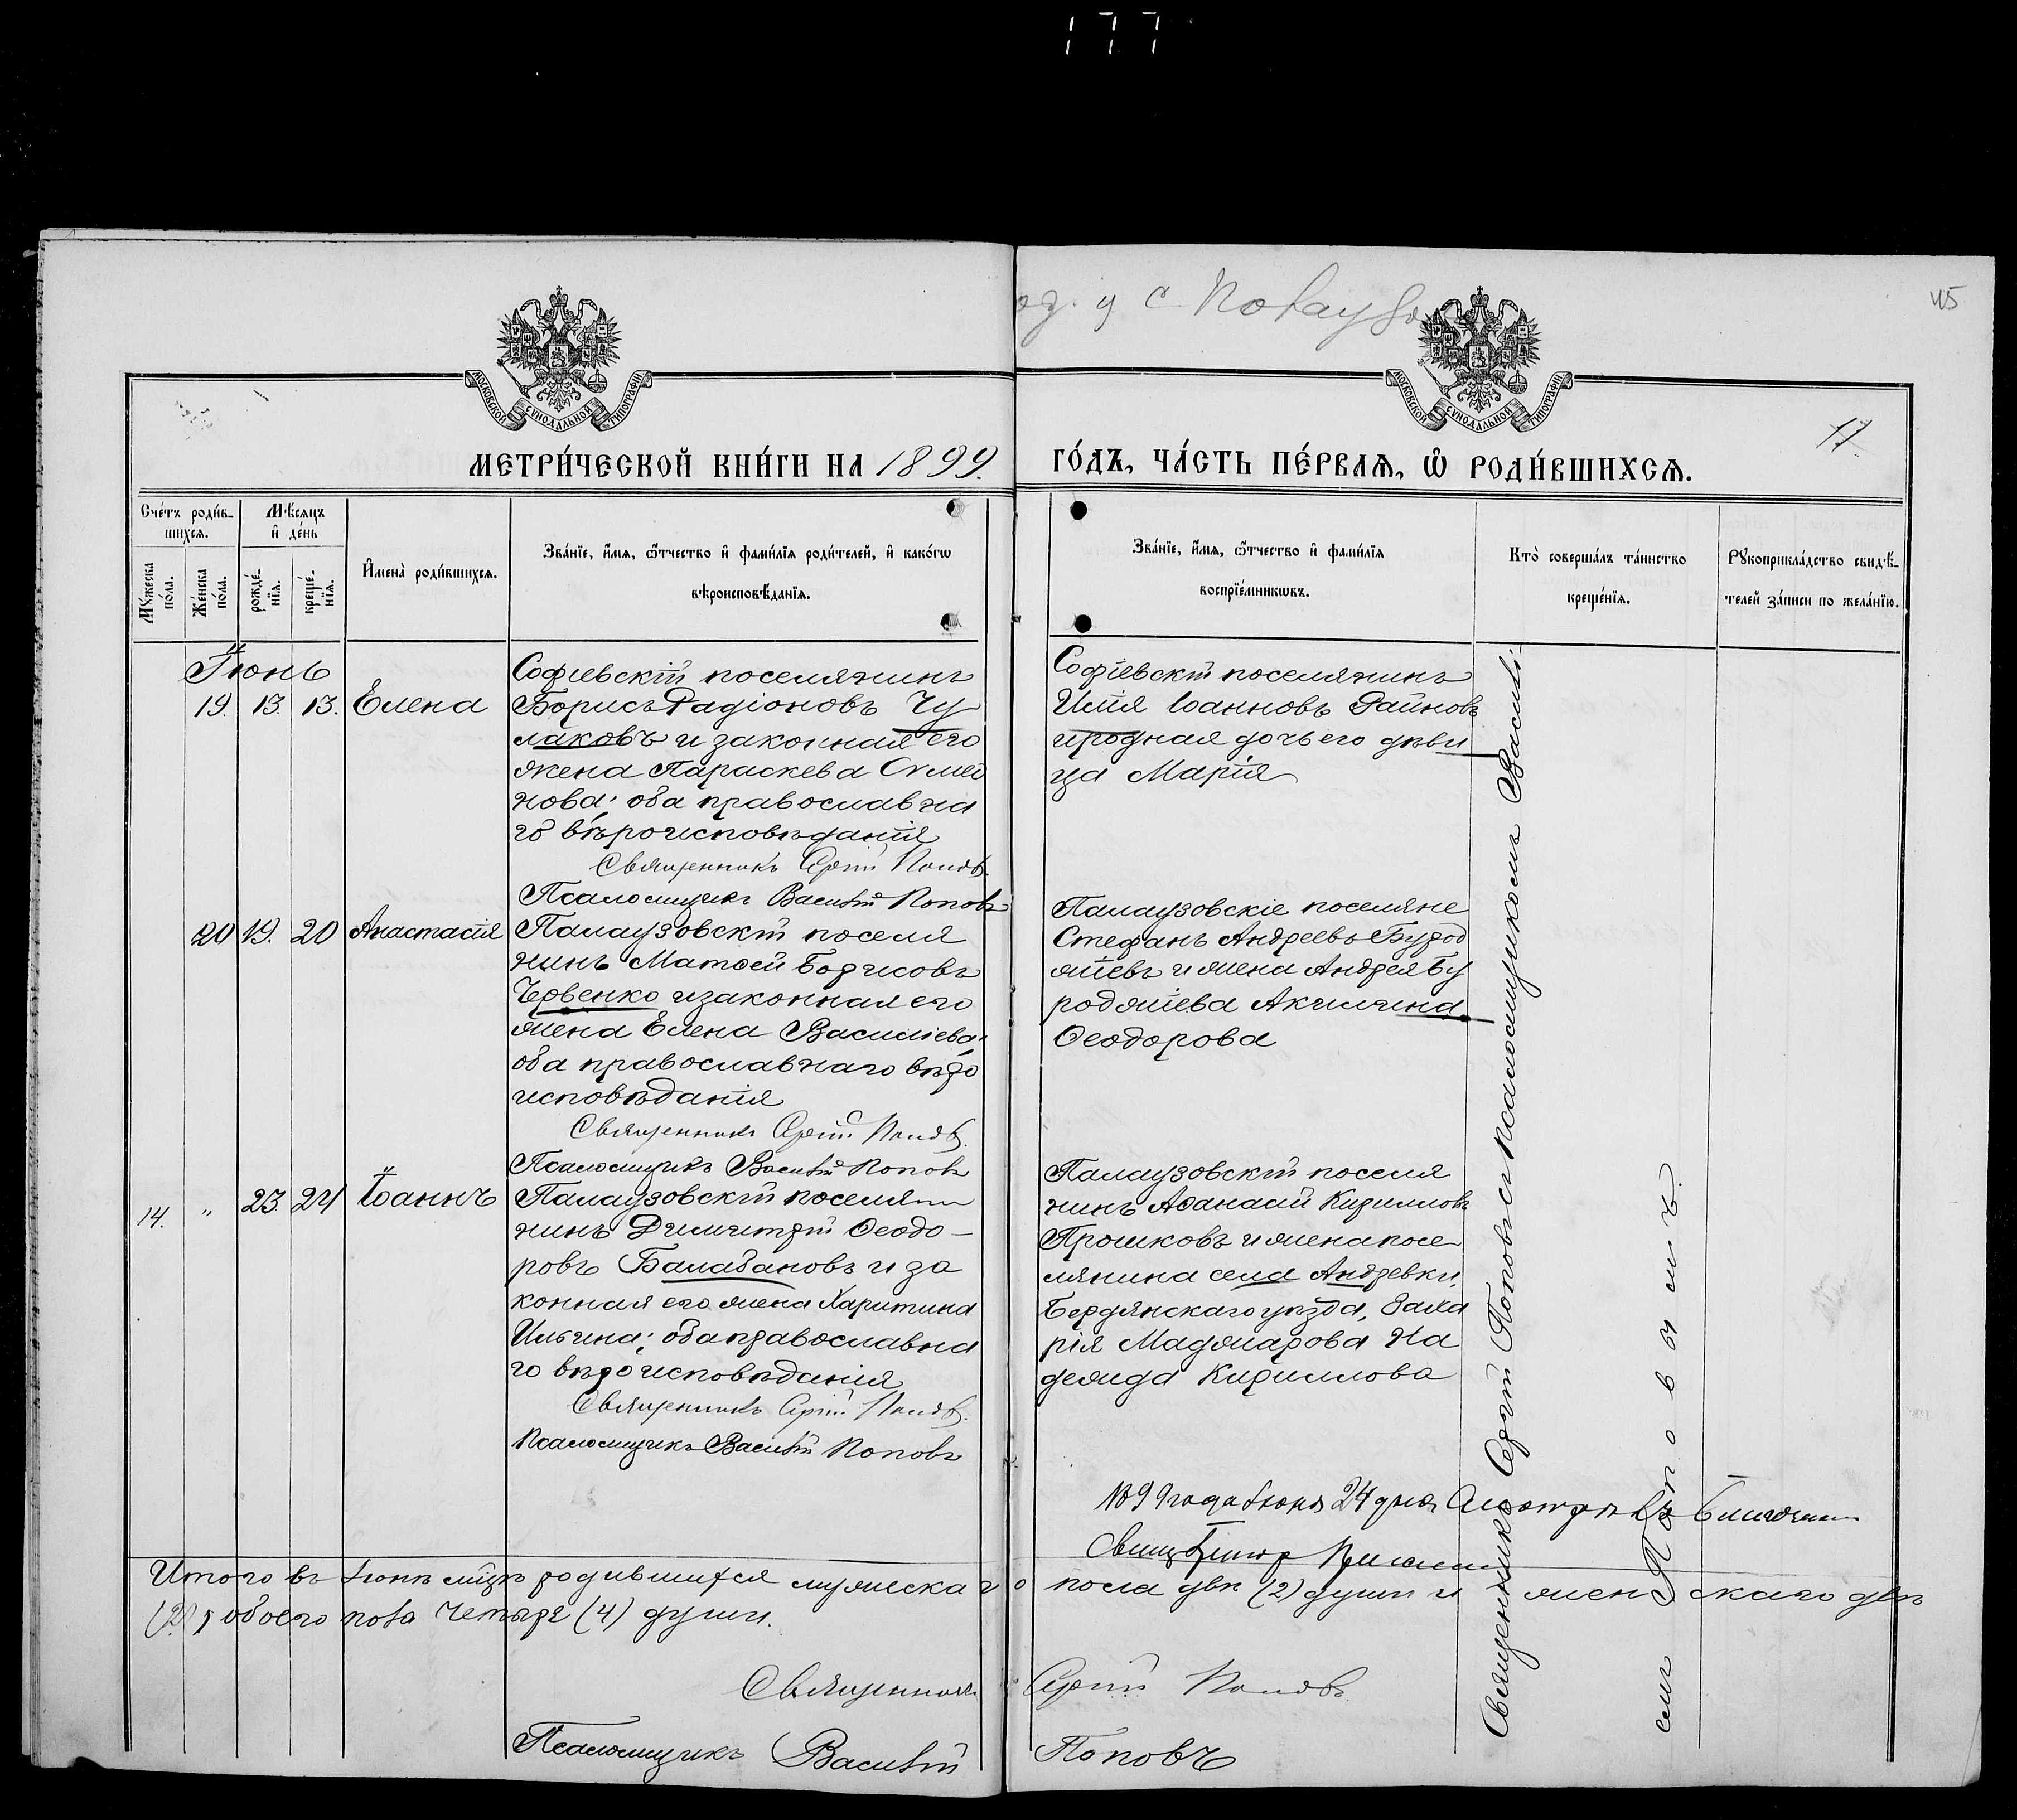 177
45
од. у с.
МОСКОВСКОЙ СѴНОДАЛЬНОЙ ТИПОГРАФІИ
МОСКОВСКОЙ СѴНОДАЛЬНОЙ ТИПОГРАФІИ
17.
МЕТРИ́ЧЕСКОЙ КНИ́ГИ НА 1899.
ГО́ДЪ, ЧА́СТЬ ПЕ́РВАѦ, Ѡ҆ РОДИ́ВШИХСѦ.
Сче́тъ роди́в-
шихсѧ.
Мꙋ́жеска
по́ла.
Же́нска
по́ла.
Мѣ́сѧцъ
и҆ де́нь
рожде́-
нїѧ.
креще́-
нїѧ.
И҆мена̀ роди́вшихсѧ.
Зва́нїе, и҆́мѧ, ѻ҆́тчество и҆ фами́лїѧ роди́телей, и҆ како́гѡ
вѣроисповѣ́данїѧ.
Зва́нїе, и҆́мѧ, ѻ҆́тчество и҆ фами́лїѧ
воспрїе́мникѡвъ.
Кто̀ соверша́лъ та́инство
креще́нїѧ.
Рꙋкоприкла́дство свидѣ́-
телей за́писи по жела́нїю.
Іюнь
19. 13. 13. Елена
Софіевскій поселянинъ
Борисъ Радіоновъ Чу
лаковъ и законная его
жена Параскева Симео
нова; оба православна
го вѣроисповѣданія
Священникъ Сергій Поповъ
Псаломщикъ Василій Поповъ
Софіевскій поселянинъ
Илія Іоанновъ Райновъ
и родная дочь его дѣви
ца Марія
20 19. 20 Анастасія
Палаузовскій поселя
нинъ Матѳей Борисовъ
Червенко и законная его
жена Елена Василіева;
оба православнаго вѣро
исповѣданія
Священникъ Сергій Поповъ.
Псаломщикъ Василій Поповъ
Палаузовскіе поселяне
Стефанъ Андреевъ Бурод
жіевъ и жена Андрея Бу
роджіева Акилина
Ѳеодорова
14. " 23. 24 Іоаннъ
Палаузовскій поселя
нинъ Димитрій Ѳеодо-
ровъ Балабановъ и за
конная его жена Харитина
Ильина; оба православна
го вѣроисповѣданія
Священникъ Сергій Поповъ.
Псаломщикъ Василій Поповъ
Палаузовскій поселя
нинъ Аѳанасій Кирилловъ
Прошковъ и жена посе
лянина села Андревки,
Бердянскаго уѣзда, Заха
рія Маджарова На
дежда Кириллова
Священникъ Сергій Поповъ съ псаломщикомъ Василі-
емъ Поповымъ.
1899 года Іюня 24 дня
Итого въ Іюнѣ мцѣ родившихся мужескаго пола двѣ (2) души и женскаго двѣ
(2), обоего пола четыре (4) души.
Священникъ Сергій Поповъ
Псаломщикъ Василій Поповъ